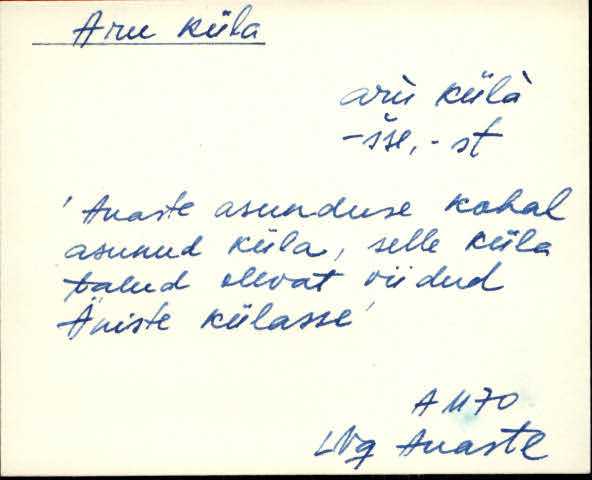 Aru küla
arù külà
-sse, -st
'Anaste asunduse kohal
asunud küla, selle küla
talud olevat viidud
Äniste külasse'
A 1170
LNg Anaste